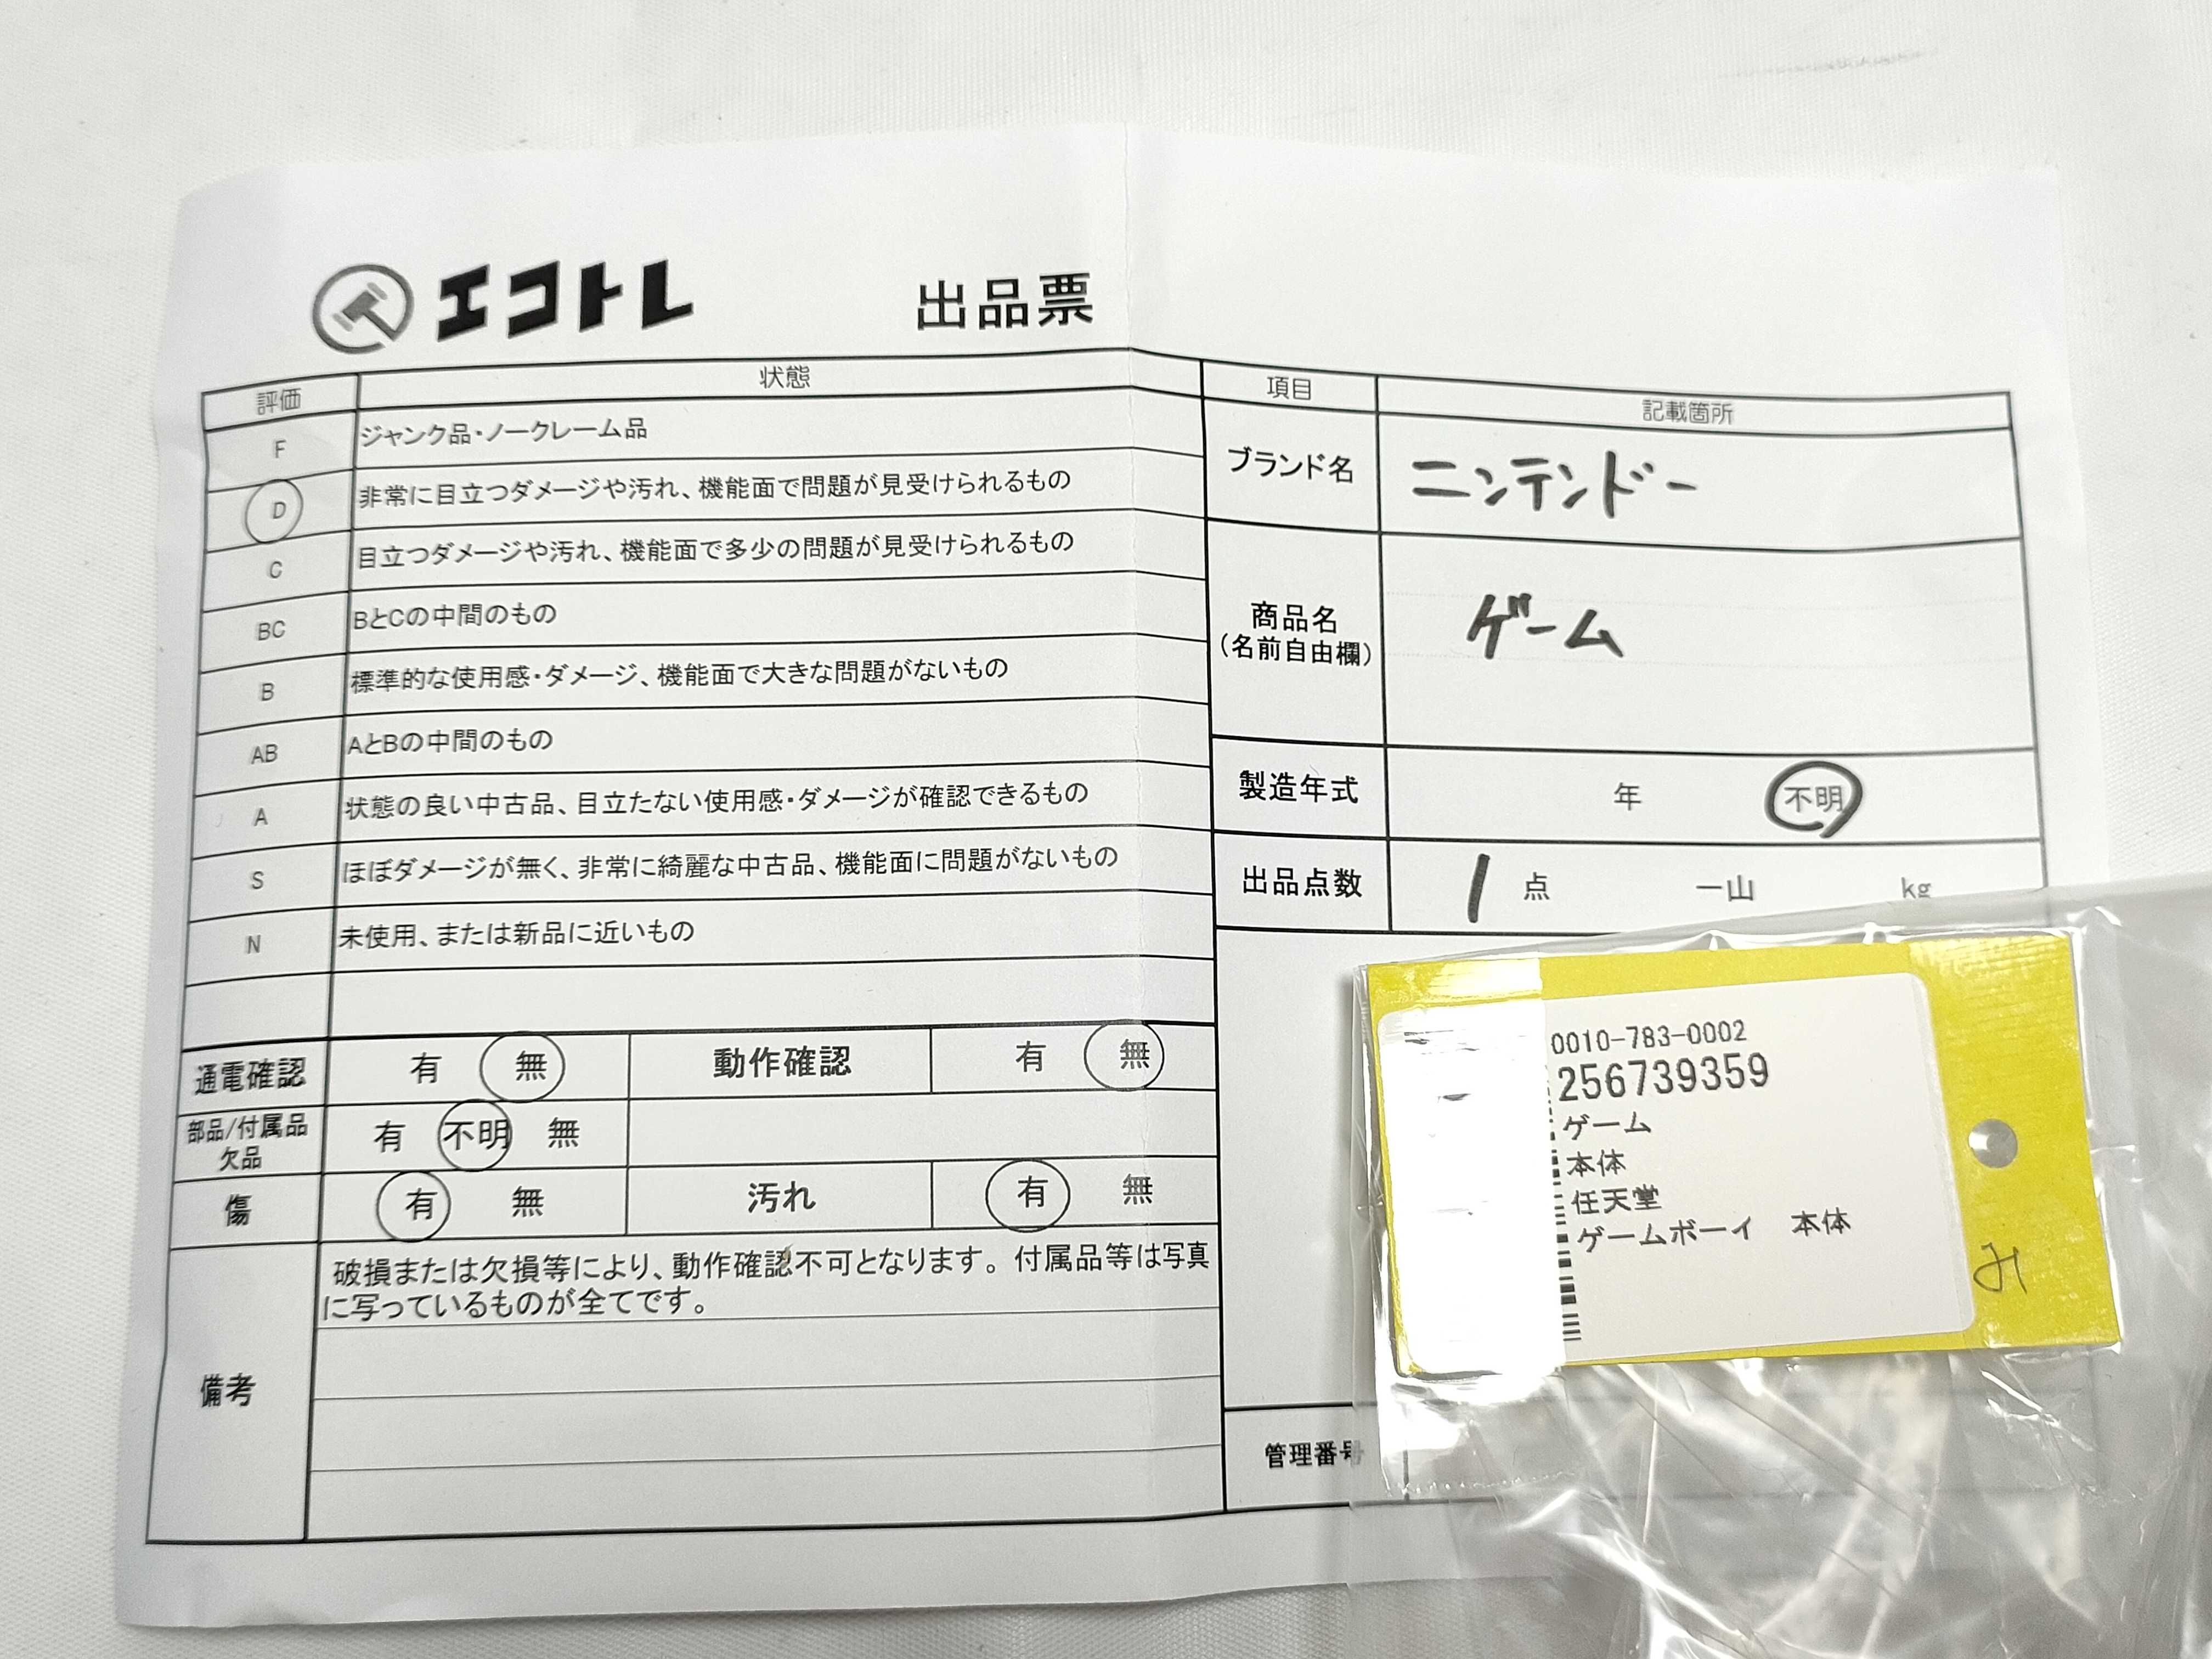 エコトレ 出品票
評価 状態
F ジャンク品・ノークレーム品
D 非常に目立つダメージや汚れ、機能面で問題が見受けられるもの
C 目立つダメージや汚れ、機能面で多少の問題が見受けられるもの
BC BとCの中間のもの
B 標準的な使用感・ダメージ、機能面で大きな問題がないもの
AB AとBの中間のもの
A 状態の良い中古品、目立たない使用感・ダメージが確認できるもの
S ほぼダメージが無く、非常に綺麗な中古品、機能面に問題がないもの
N 未使用、または新品に近いもの
通電確認 有 無 動作確認 有 無
部品/付属品 有 不明 無
欠品
傷 有 無 汚れ 有 無
備考
破損または欠損等により、動作確認不可となります。付属品等は写真
に写っているものが全てです。
項目 記載箇所
ブランド名 ニンテンドー
商品名 ゲーム
(名前自由欄)
製造年式 年 不明
出品点数 1 点 一山 kg
管理番号
0010-783-0002
256739359
ゲーム
本体
任天堂
ゲームボーイ 本体